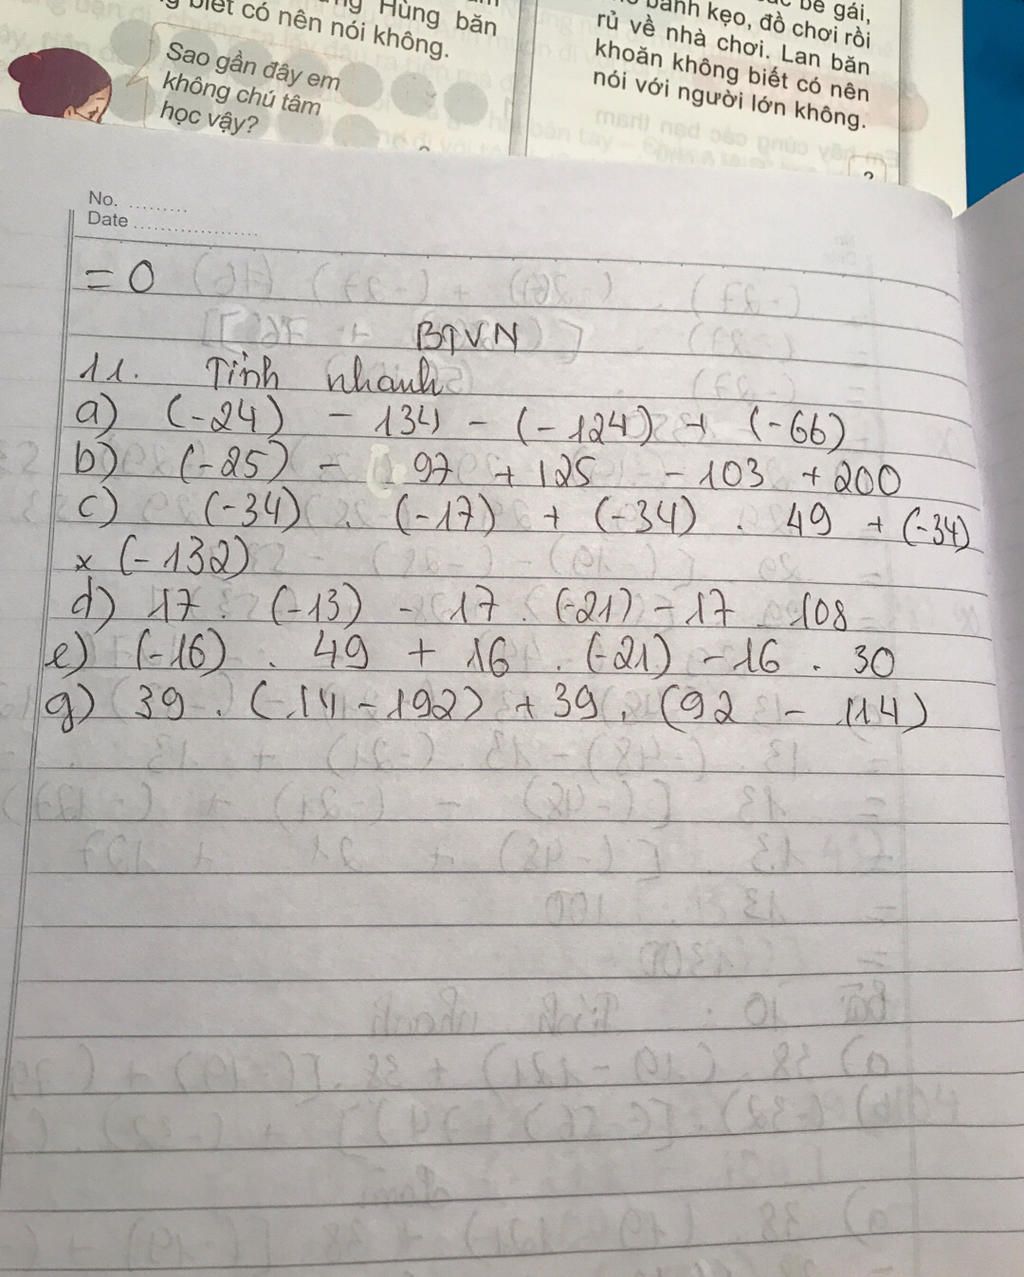 biết có nên nói không.
Hùng băn
Sao gần đây em
không chú tâm
học vậy?
bé gái,
bánh kẹo, đồ chơi rồi
rủ về nhà chơi. Lan băn
khoăn không biết có nên
nói với người lớn không.
No. .........
Date ..................
= 0
BTVN
11. Tính nhanh
a) (-24) - 134 - (-124) + (-66)
b) (-25) - 97 + 125 - 103 + 200
c) (-34) . (-17) + (-34) . 49 + (-34)
x (-132)
d) 17 . (-13) - 17 . (-21) - 17 . 108
e) (-16) . 49 + 16 . (-21) - 16 . 30
g) 39 . (-14 - 192) + 39 . (92 - 114)